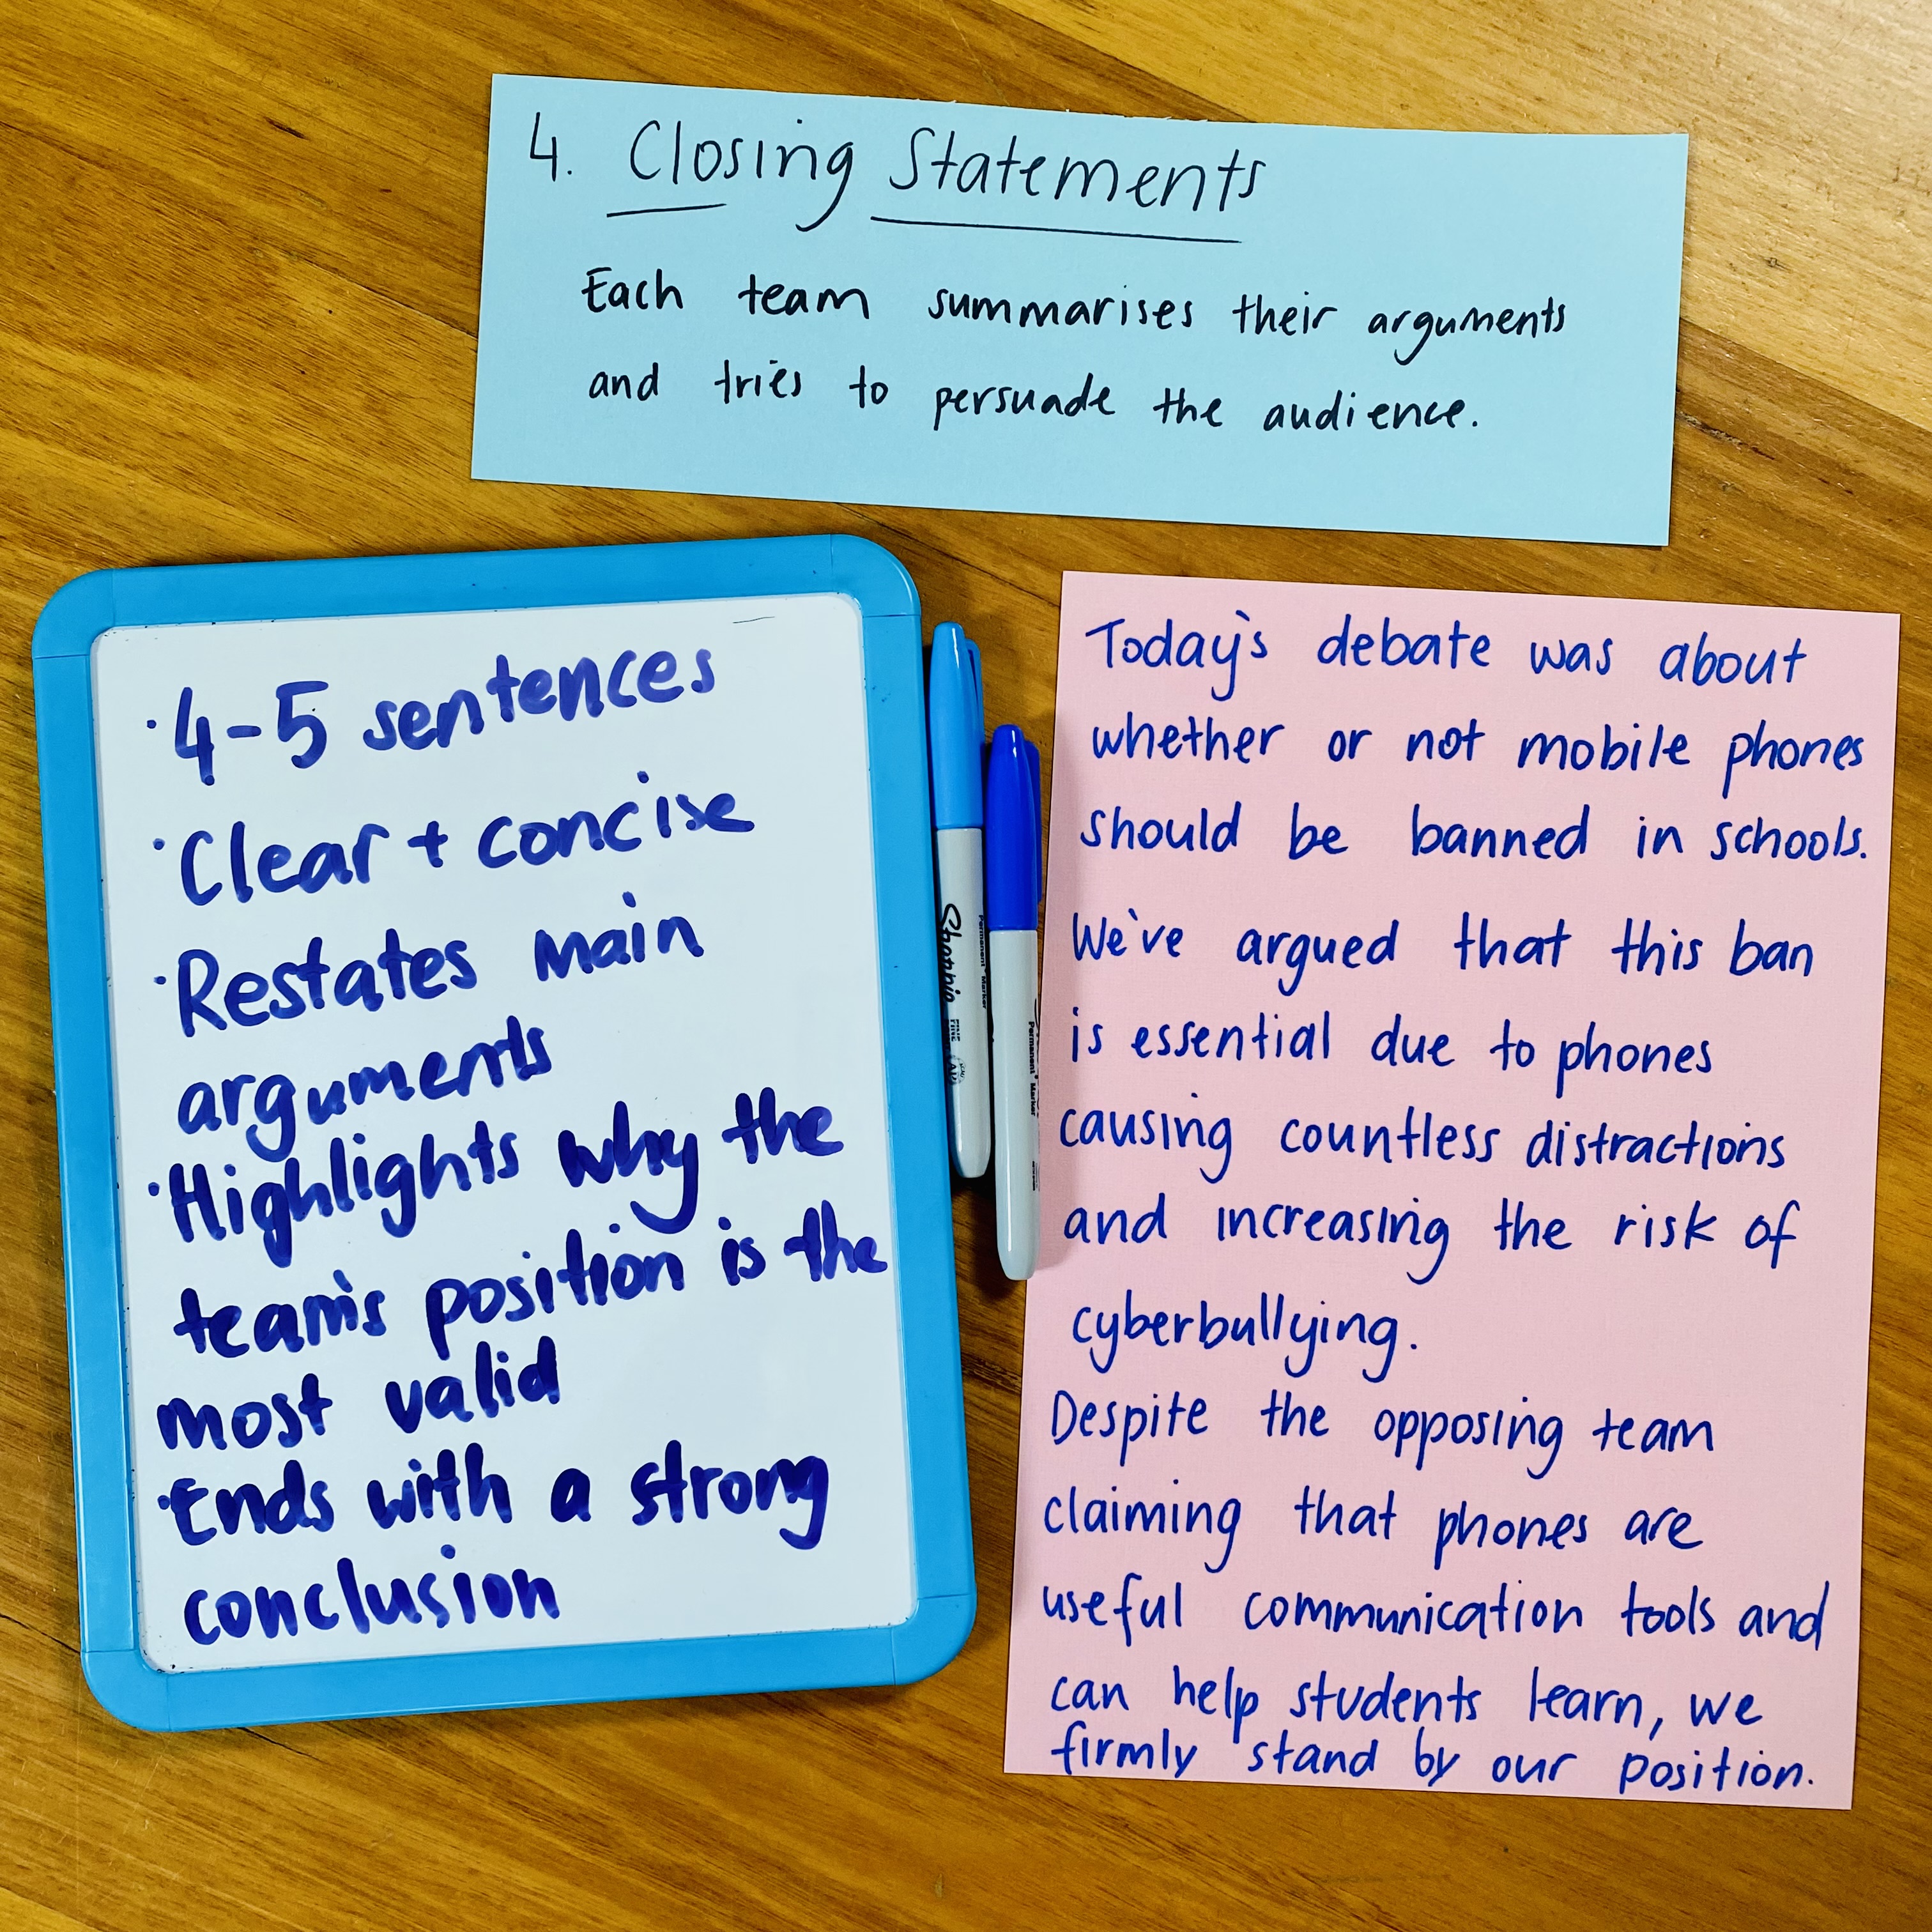 4. Closing Statements
Each team summarises their arguments
and tries to persuade the audience.
·4-5 sentences
·Clear + concise
·Restates main
arguments
·Highlights why the
team's position is the
most valid
·Ends with a strong
conclusion
Sharpie
Permanent Marker
Permanent Marker
Today's debate was about
whether or not mobile phones
should be banned in schools.
We've argued that this ban
is essential due to phones
causing countless distractions
and increasing the risk of
cyberbullying.
Despite the opposing team
claiming that phones are
useful communication tools and
can help students learn, we
firmly stand by our position.